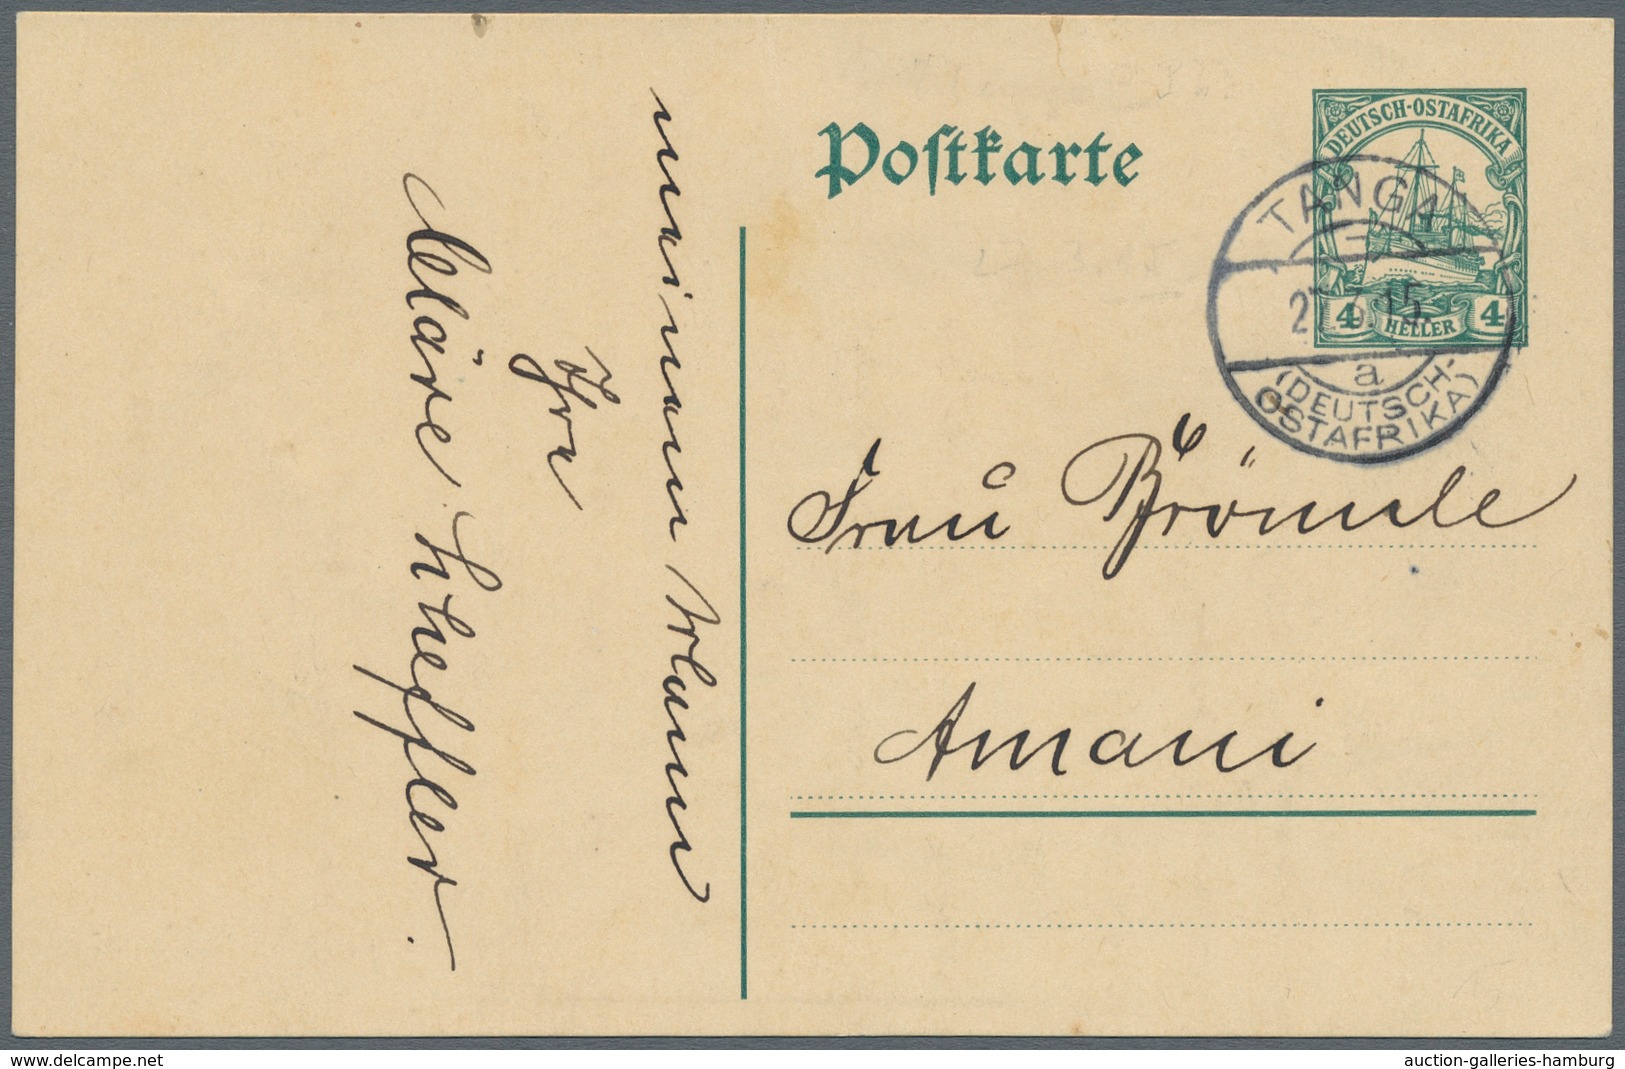 Postkarte
DEUTSCH-OSTAFRIKA
4 HELLER 4
TANGA
2 .7.15.
a
(DEUTSCH-
OSTAFRIKA)
Frau Brömle
Amani
meinem
Ihre
Kläre Scheffler.
delcampe.net
auction-galleries-hamburg